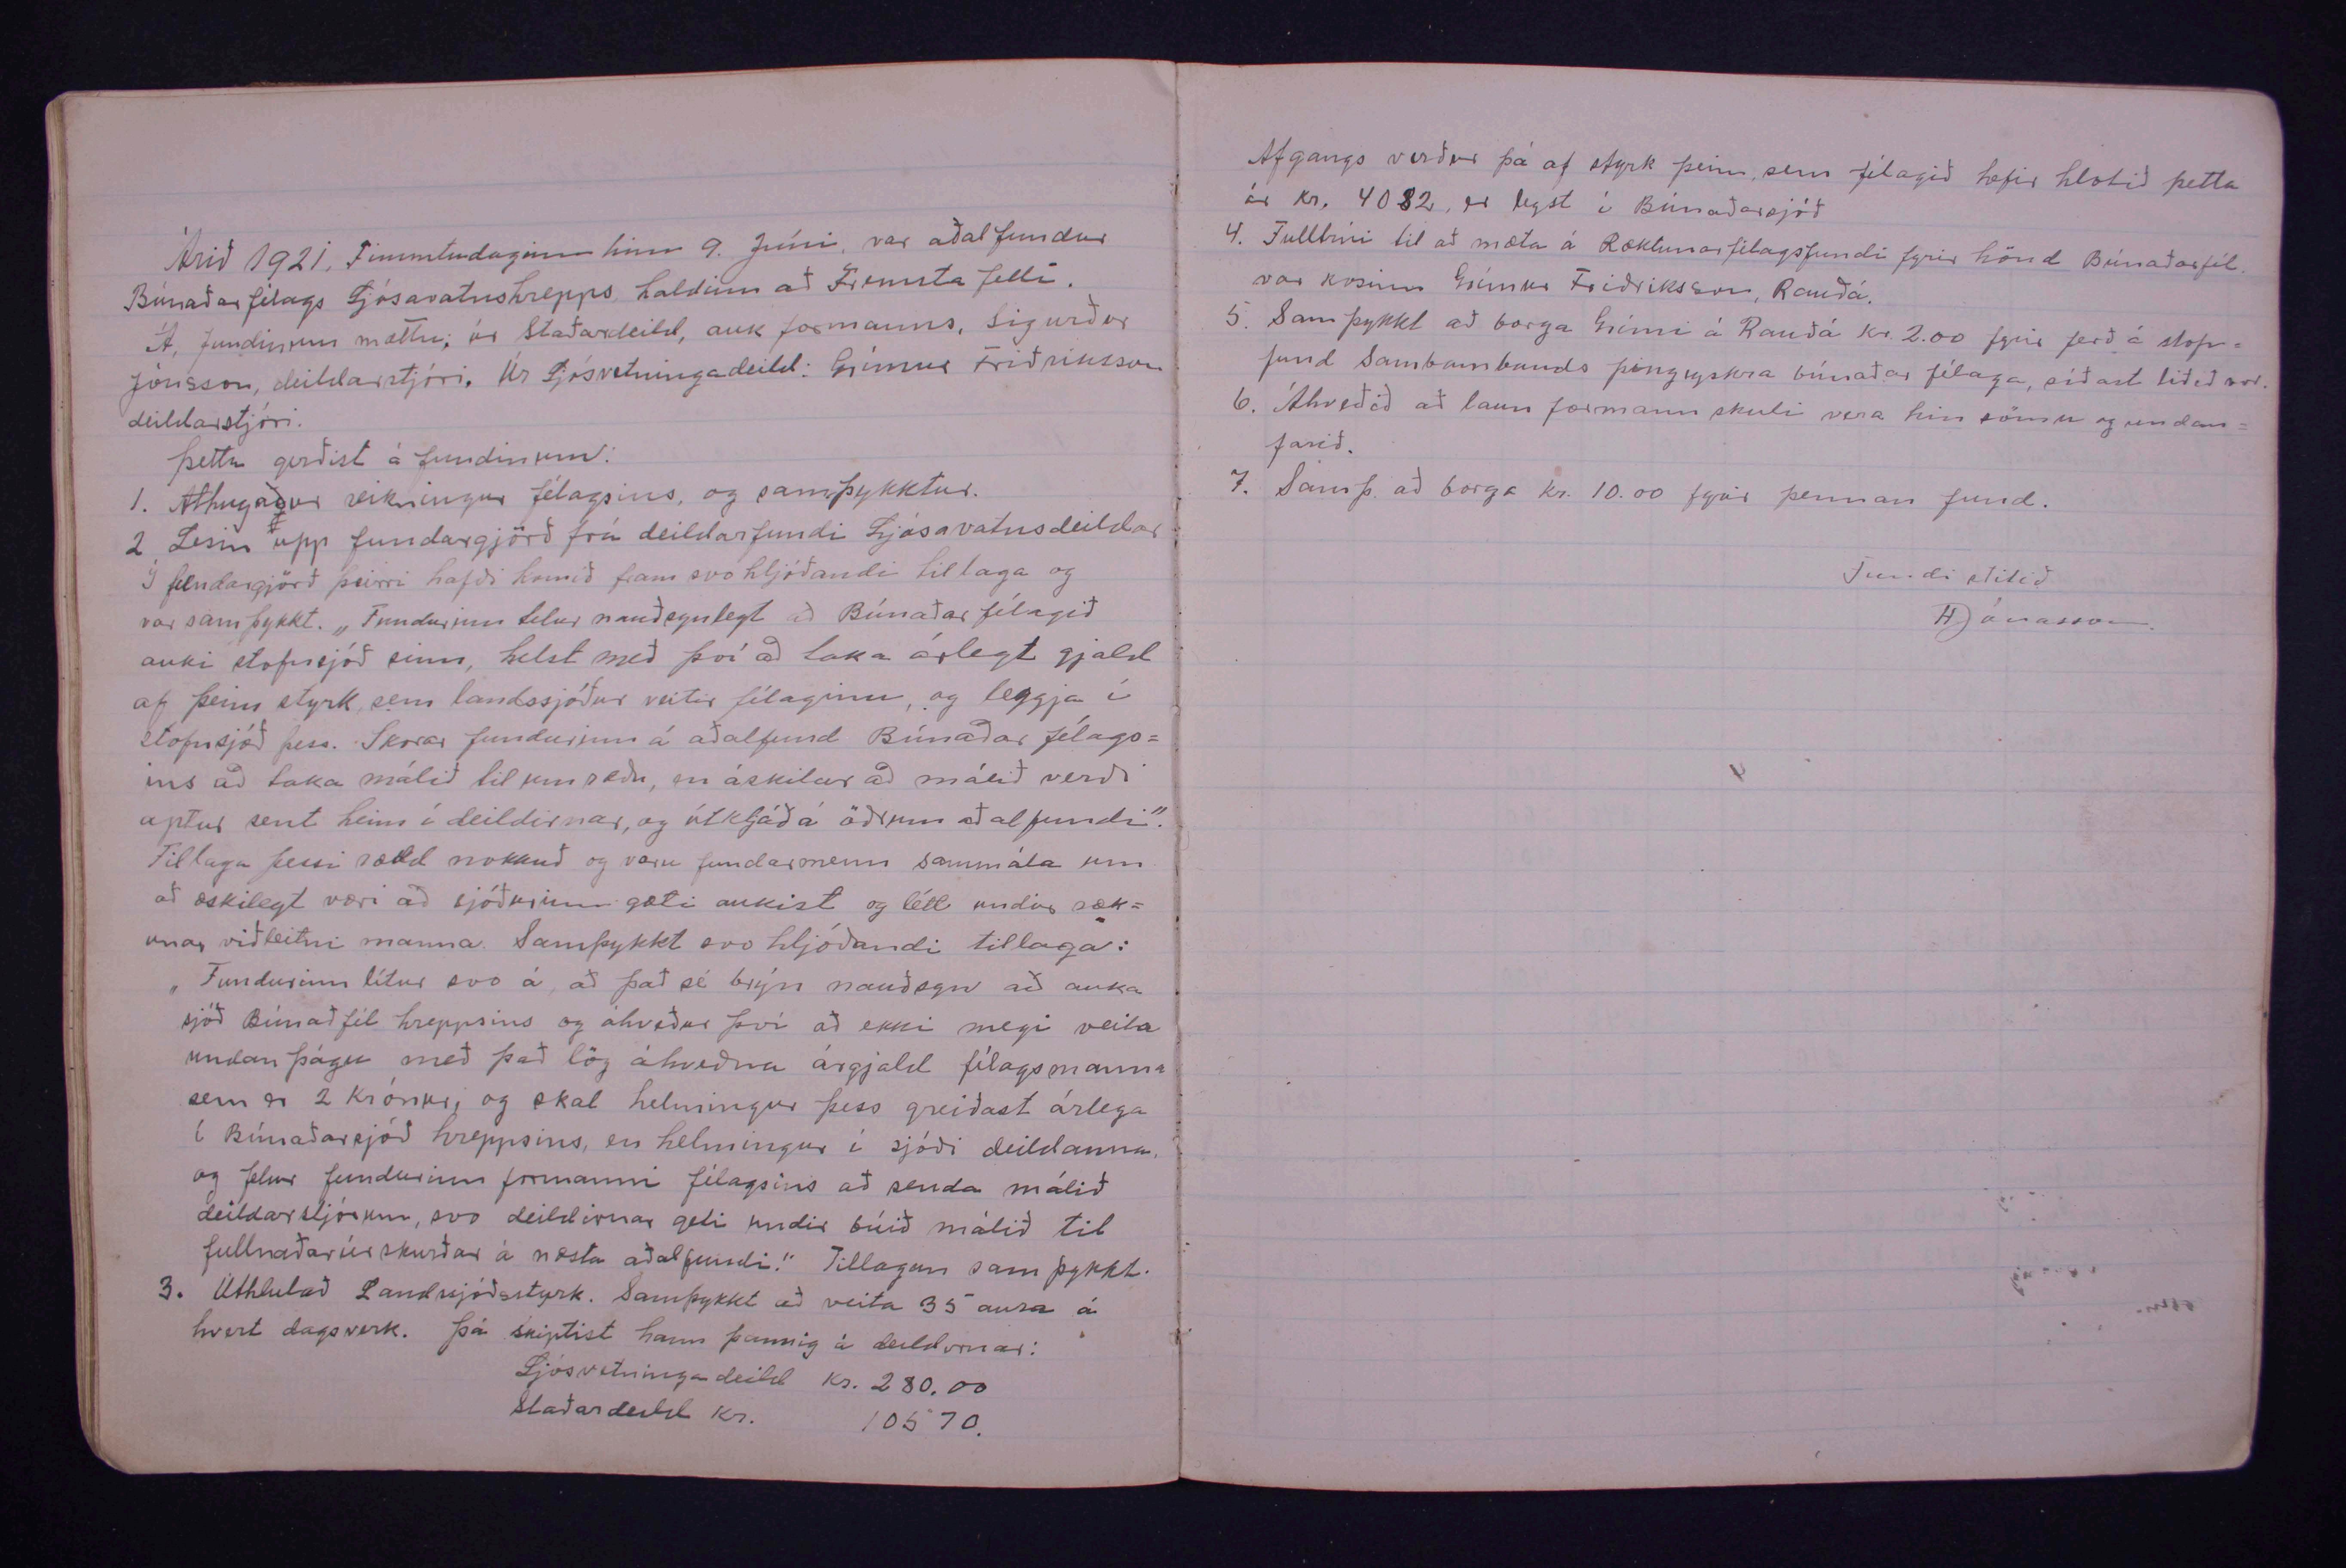 Árið 1921, Fimmtudaginn hinn 9. Júní, var aðalfundur
Búnaðarfélags Ljósavatnshrepps haldinn að Fremsta felli.
Á, fundinum mættu; úr Staðardeild, auk formanns, Sigurður
Jónsson, deildarstjóri. Úr Ljósvetningadeild: Grímur Friðriksson
deildarstjóri.
Þetta gerðist á fundinum:
1. Athugaður reikningur félagsins, og samþykktur.
2 Lesin upp fundargjörð frá deildarfundi Ljósavatnsdeildar
Í fundargjörð þeirri hafði komið fram svo hljóðandi tillaga og
var samþykkt. „Fundurinn telur nauðsynlegt að Búnaðarfélagið
auki stofnsjóð sinn, helst með því að taka árlegt gjald
af þeim styrk, sem landssjóður veitir félaginu, og leggja í
stofnsjóð þess. Skorar fundurinn á aðalfund Búnaðar félags=
ins að taka málið til umræðu, en áskilur að málið verði
aptur sent heim í deildirnar, og útkljáð á öðrum aðalfundi".
Tillaga þessi rædd nokkuð og voru fundarmenn sammála um
að æskilegt væri að sjóðurinn gæti aukist og létt undir ræk=
unar viðleitni manna. Samþykkt svo hljóðandi tillaga:
„Fundurinn lítur svo á, að það sé brýn nauðsyn að auka
sjóð Búnaðfél hreppsins og áhveður því að ekki megi veita
undanþágu með það lög áhveðna árgjald félagsmanna
sem er 2 krónur, og skal helmingur þess greiðast árlega
í Búnaðarsjóð hreppsins, en helmingur í sjóði deildanna,
og felur fundurinn formanni félagsins að senda málið
deildarstjórum, svo deildirnar geti undir búið málið til
fullnaðarúrskurðar á næsta aðalfundi." Tillagan samþykkt.
3. Úthlutað Landsjóðsstyrk. Samþykkt að veita 35 aura á
hvert dagsverk. Þá skiptist hann þannig á deildirnar:
Ljósvetninga deild kr. 280.00
Staðardeild kr. 105 70.
Afgangs verður þá af styrk þeim, sem félagið hefir hlotið þetta
ár kr. 4082, er legst í Búnaðarsjóð
4. Fulltrúi til að mæta á Ræktunarfélagsfundi fyrir hönd Búnaðarfél.
var kosinn Grímur Friðriksson, Rauðá.
5. Samþykkt að borga Grími á Rauðá kr. 2.00 fyrir ferð á stofn=
fund Sambambands þingeyskra búnaðar félaga, síðast liðið vor.
6. Áhveðið að laun formann skuli vera hin sömu og undan=
farið.
7. Samþ. að borga kr. 10.00 fyrir þennan fund.
Fundi slitið
HJónasson.